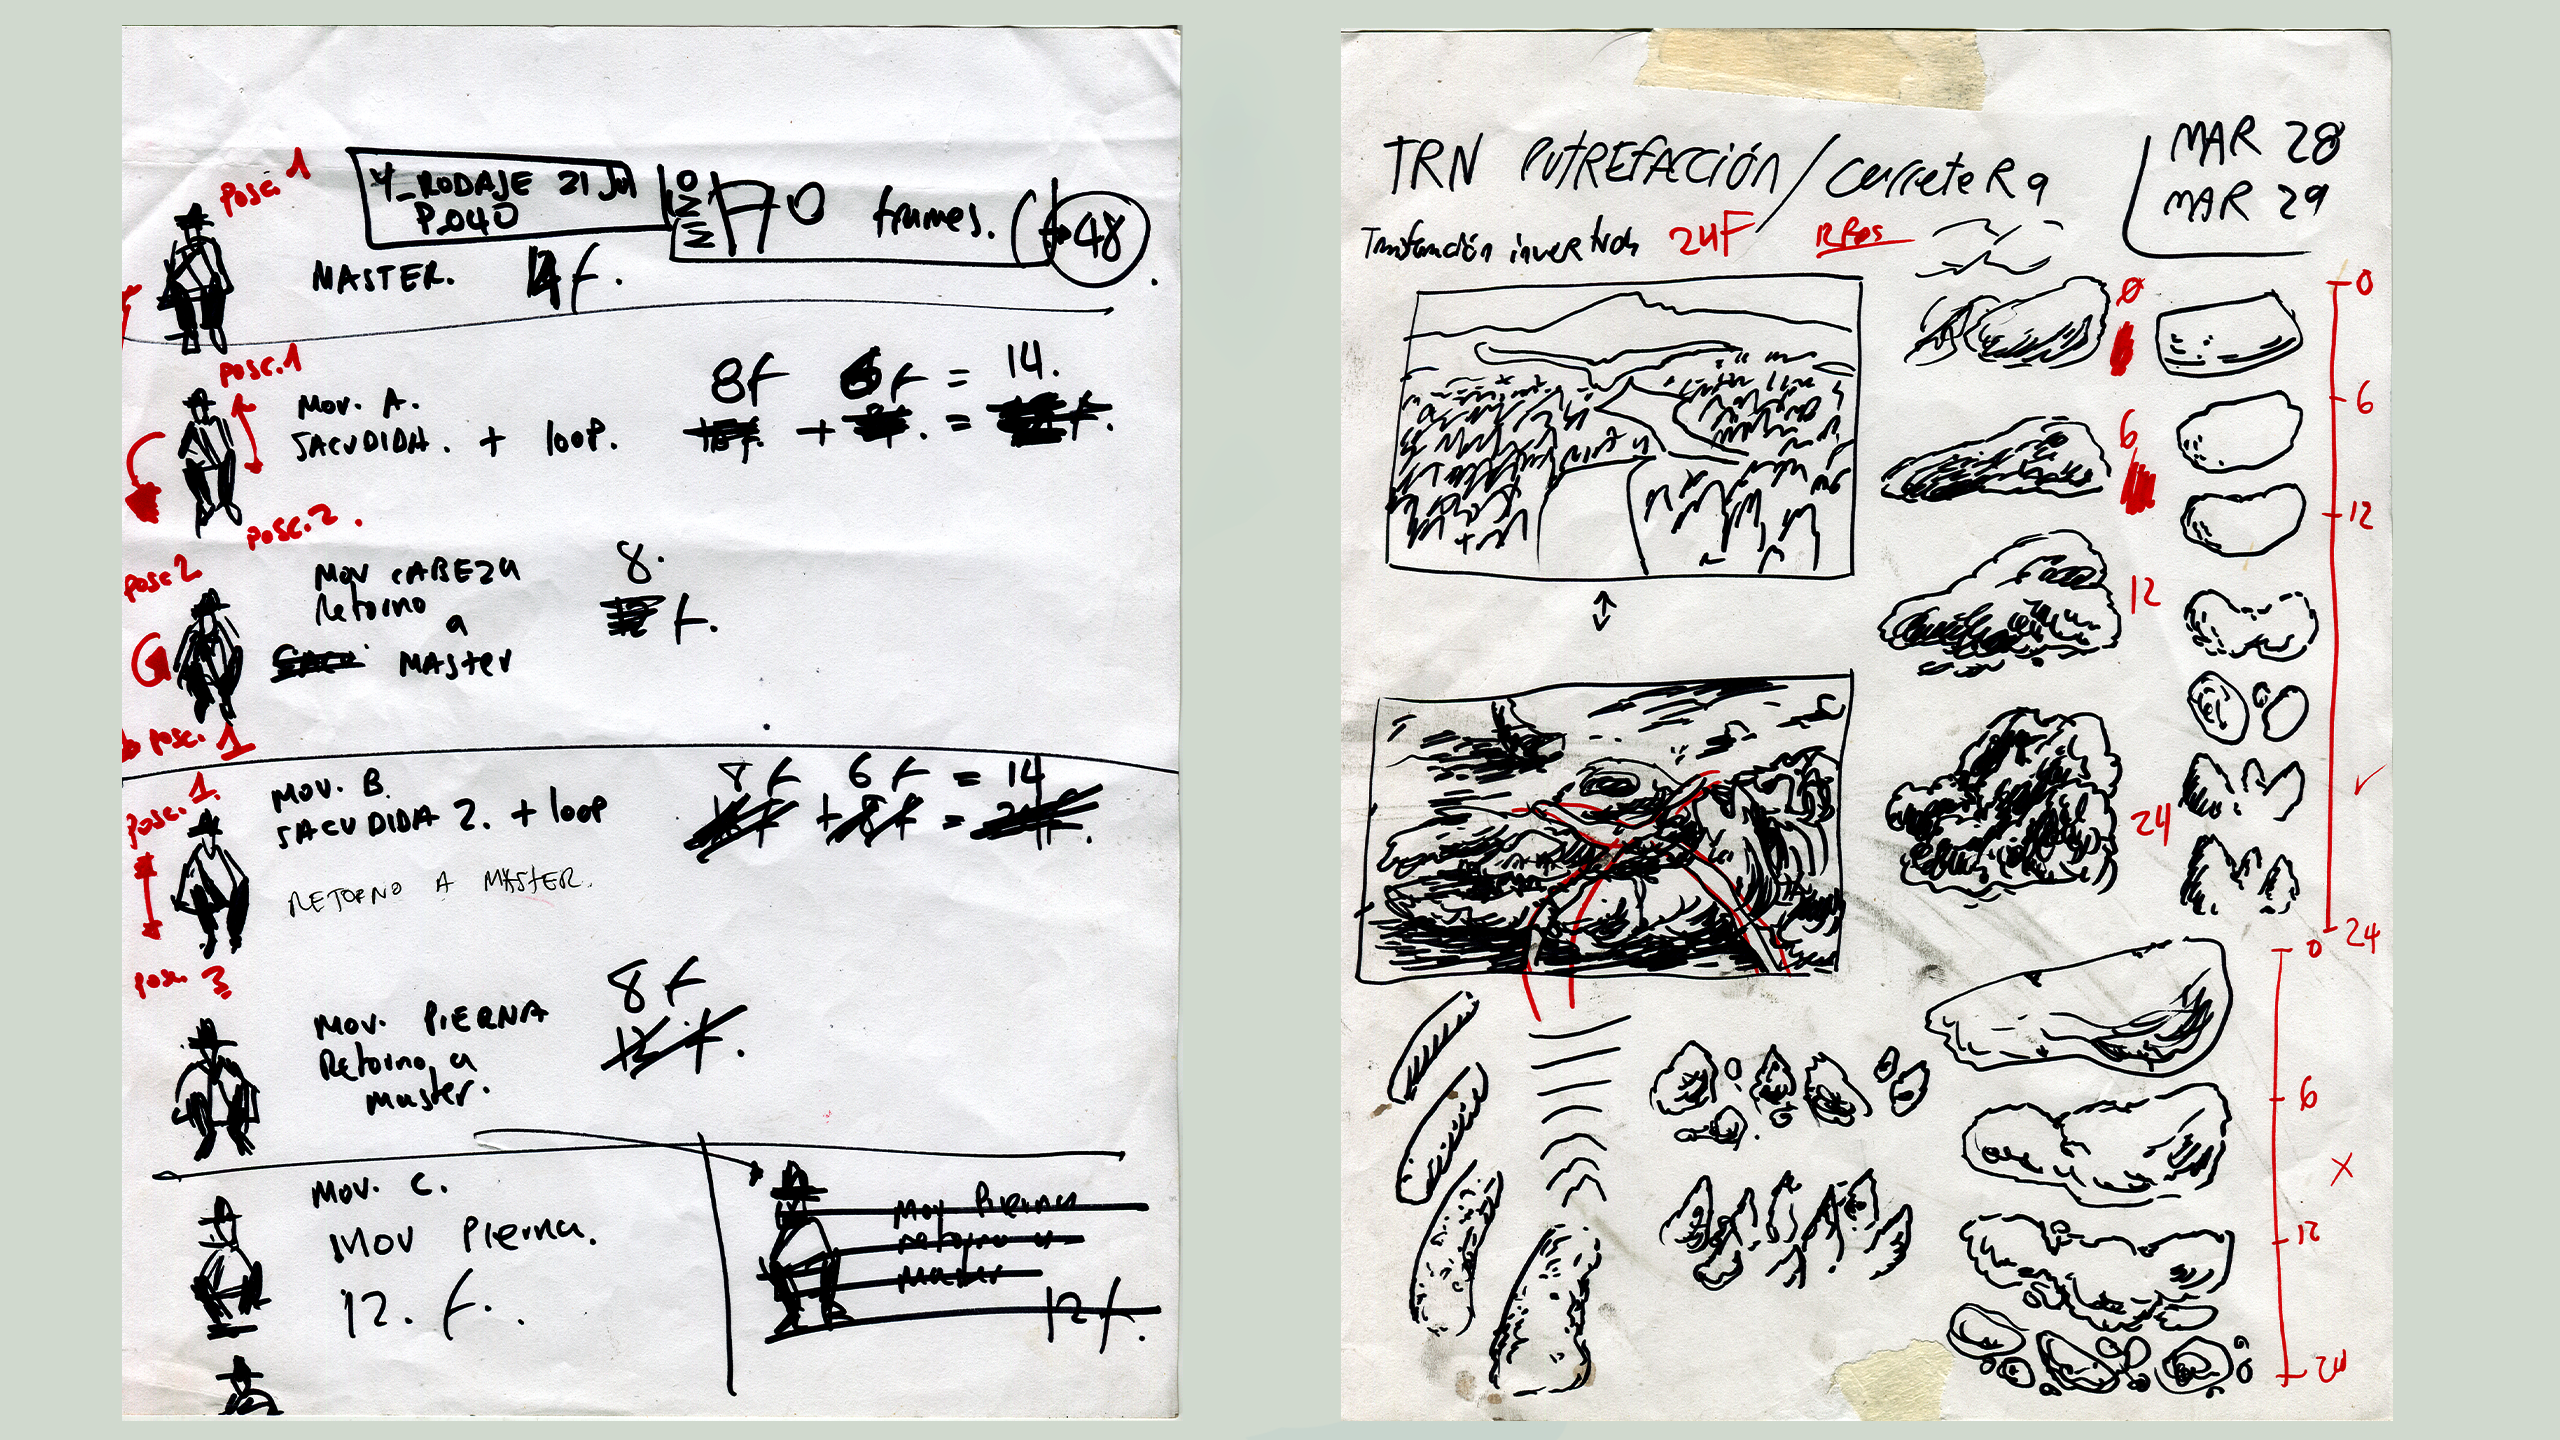 posc. 1
4_RODAJE 21 Jul
P.040
MINIMO 70 frames. (→48)
MASTER. 14 f.
posc. 1
8f 6f = 14.
MOV. A.
SACUDIDA. + loop. + =
posc. 2.
posc 2
MOV CABEZA 8.
Retorno
a
MASTER f.
posc. 1
posc. 1.
MOV. B. 8f 6f = 14
SACUDIDA 2. + loop
RETORNO A MASTER.
posc. 3
MOV. PIERNA 8f
Retorno a 12 f.
master.
MOV. C.
MOV Pierna.
12. f.
Mov Pierna
retorno a
Master
12 f.
TRN PUTREFACCIÓN / carreteRa
MAR 28
MAR 29
24F RPOS
0
6
12
24
0
6
12
24
0
6
12
24